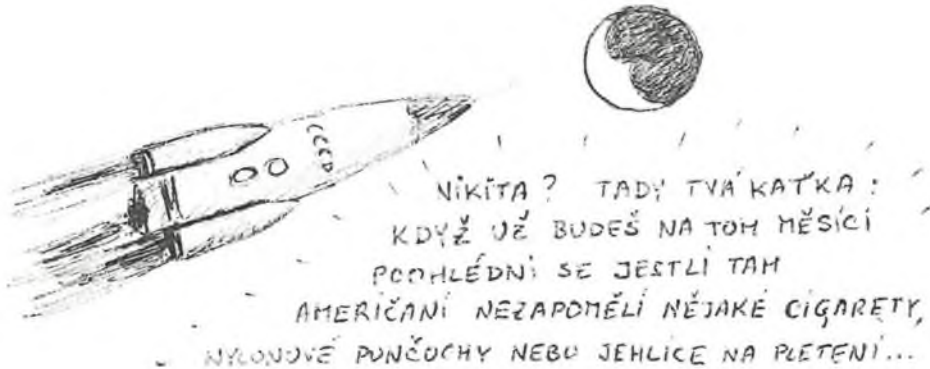 CCCP
NIKITA? TADY TVÁ KAŤKA:
KDYŽ UŽ BUDEŠ NA TOM MĚSÍCI
POOHLÉDNI SE JESTLI TAM
AMERIČANÍ NEZAPOMĚLÍ NĚJAKÉ CIGARETY,
NYLONOVÉ PUNČOCHY NEBO JEHLICE NA PLETENÍ...